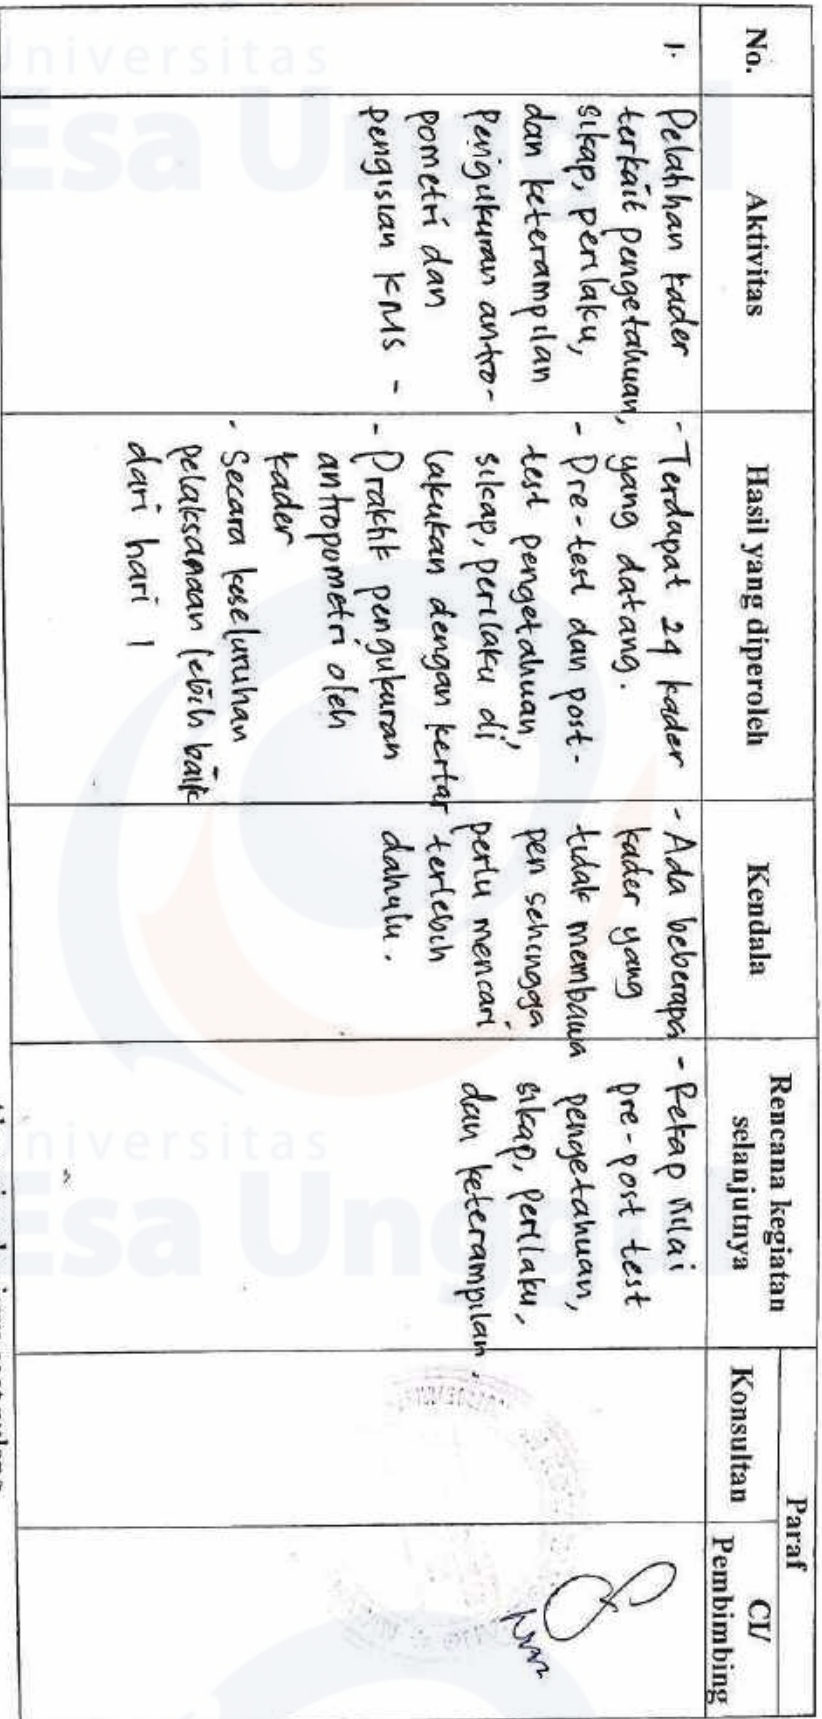 No.
Aktivitas
Hasil yang diperoleh
Kendala
Rencana kegiatan
selanjutnya
Paraf
Konsultan
CI/
Pembimbing
1.
Pelatihan kader
terkait pengetahuan,
sikap, perilaku,
dan keterampilan
pengukuran antro-
pometri dan
pengisian KMS -
- Terdapat 24 kader
yang datang.
- Pre-test dan post-
test pengetahuan,
sikap, perilaku di
lakukan dengan kertas
- Praktik pengukuran
antropometri oleh
kader
- Secara keseluruhan
pelaksanaan lebih baik
dari hari 1
- Ada beberapa
kader yang
tidak membawa
pen sehingga
perlu mencari
terlebih
dahulu.
- Rekap nilai
pre-post test
pengetahuan,
sikap, perilaku,
dan keterampilan.
Universitas
Esa Unggul
Universitas
Esa Unggul